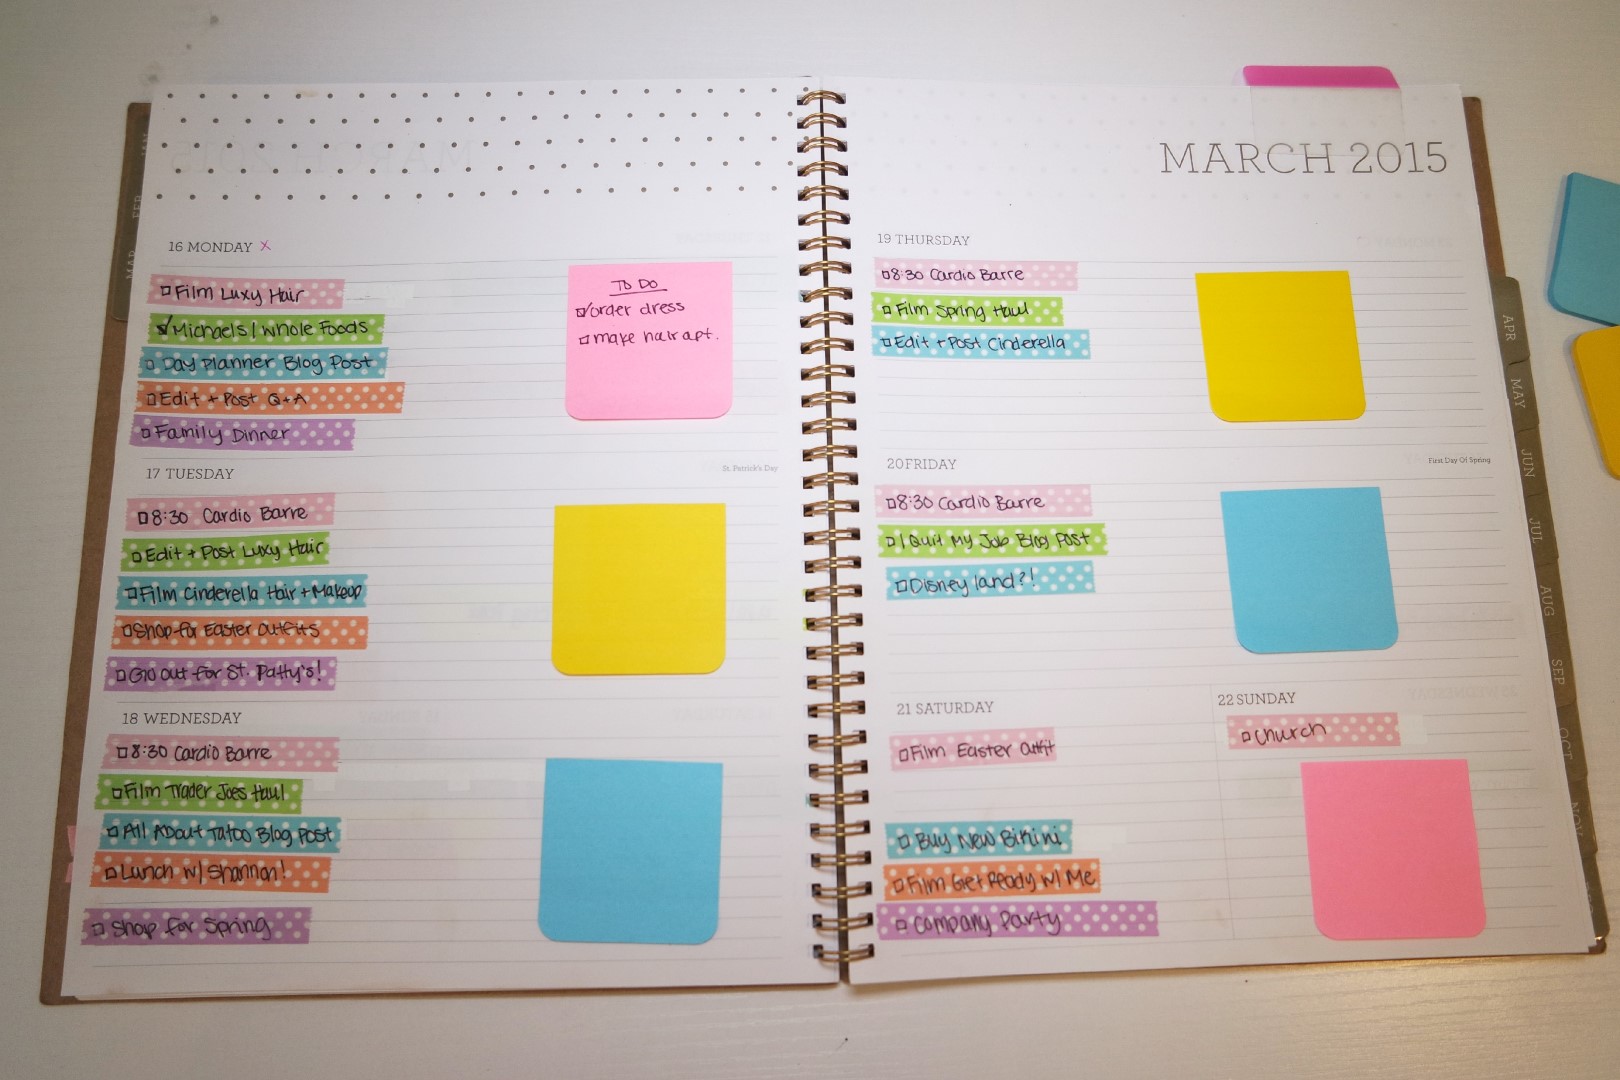 MARCH 2015
16 MONDAY x
Film Luxy Hair
Michaels | Whole Foods
Day Planner Blog Post
Edit + Post Q+A
Family Dinner
To Do
order dress
make hair apt.
17 TUESDAY
St. Patrick's Day
8:30 Cardio Barre
Edit + Post Luxy Hair
Film Cinderella Hair + Makeup
Shop for Easter Outfits
Go out for St. Patty's!
18 WEDNESDAY
8:30 Cardio Barre
Film Trader Joes Haul
All About Tatoo Blog Post
Lunch w/ Shannon!
Shop for Spring
19 THURSDAY
8:30 Cardio Barre
Film Spring Haul
Edit + Post Cinderella
20 FRIDAY
First Day Of Spring
8:30 Cardio Barre
I Quit My Job Blog Post
Disney land?!
21 SATURDAY
Film Easter Outfit
Buy New Bikini
Film Get Ready w/ Me
Company Party
22 SUNDAY
Church
FEB
MAR
APR
MAY
JUN
JUL
AUG
SEP
OCT
NOV